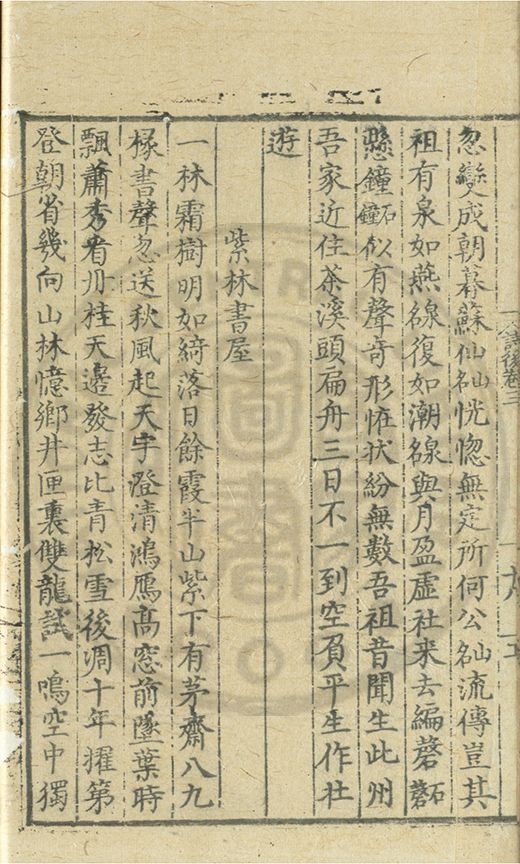 忽變成朝暮蘇仙山名恍惚無定所何公山名流傳豈其
祖有泉如燕線復如潮線與月盈虛社来去編磬石磬
懸鐘石鐘似有聲竒形恠狀紛無數吾祖昔聞生此州
吾家近住茶溪頭扁舟三日不一到空負平生作社
遊
紫林書屋
一林霜樹明如綺落日餘霞半山紫下有茅齋八九
椽書聲忽送秋風起天宇澄清鴻鴈髙窓前墜葉時
飄蕭秀看丹桂天邊發志比青松雪後凋十年擢第
登朝省幾向山林憶鄉井匣裏雙龍試一鳴空中獨